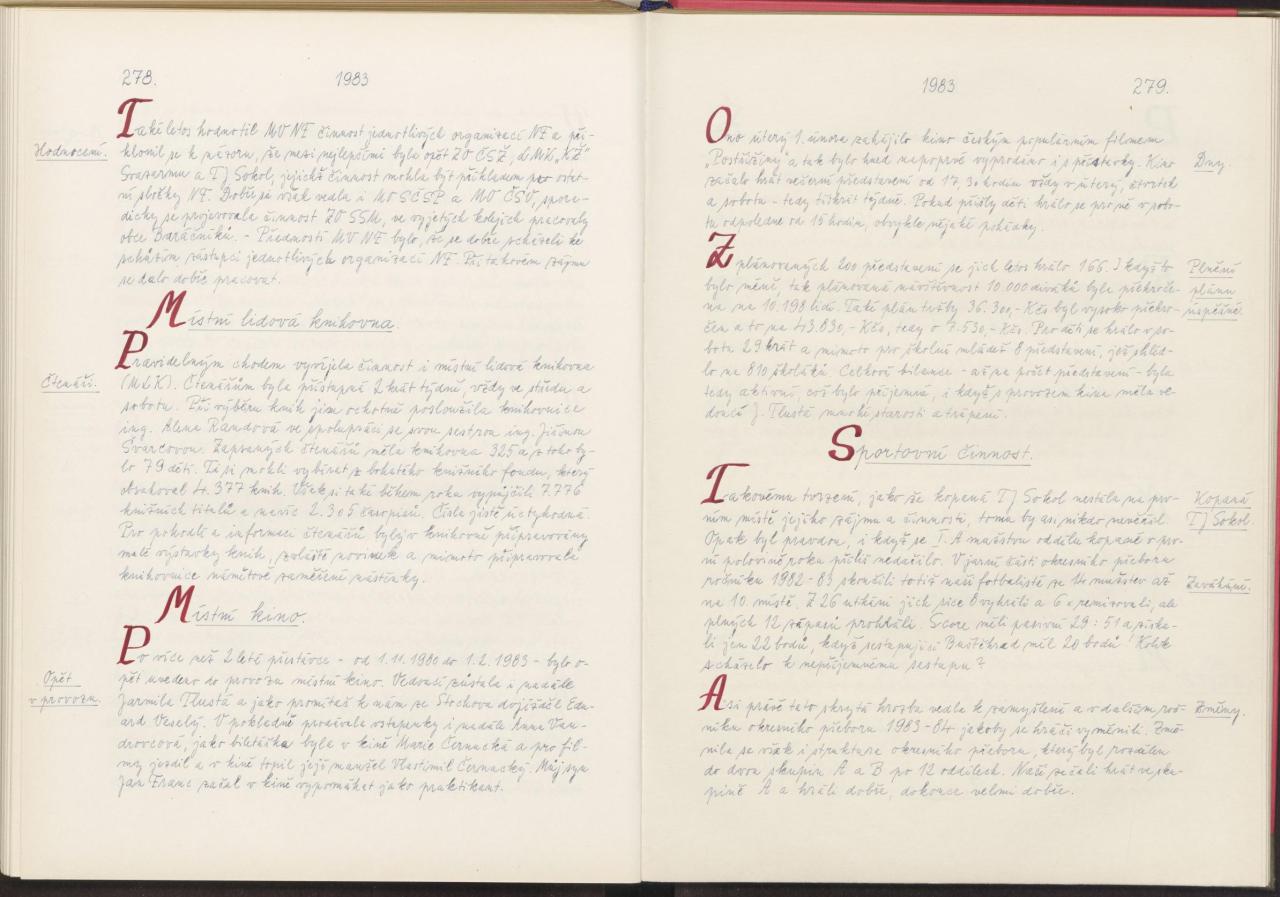 278.
1983
Hodnocení.
Také letos hodnotil MV NF činnost jednotlivých organizací NF a při-
klonil se k názoru, že mezi nejlepšími byla opět ZO ČSŽ, dále MK „KŽ“
Svazarmu a TJ Sokol, jejichž činnost mohla být příkladem pro ostat-
ní složky NF. Dobře si však vedla i MO SČSP a MO ČSO, spora-
dicky se projevovala činnost ZO SSM, ve vyjetých kolejích pracovaly
obce Baráčníků. - Předností MV NF bylo, že se dobře scházeli ke
schůzím zástupci jednotlivých organizací NF. Při takovém zájmu
se dalo dobře pracovat.
Místní lidová knihovna.
Čtenáři.
Pravidelným chodem vyvíjela činnost i místní lidová knihovna
(MLK). Čtenářům byla přístupná 2 krát týdně, vždy ve středu a
sobotu. Při výběru knih jim ochotně posloužila knihovnice
ing. Alena Randová ve spolupráci se svou sestrou ing. Jiřinou
Švarcovou. Zapsaných čtenářů měla knihovna 325 a z toho by-
lo 79 dětí. Ti si mohli vybírat z bohatého knižního fondu, který
obsahoval 4.377 knih. Všichni si také během roku vypůjčili 7.776
knižních titulů a navíc 2.305 časopisů. Čísla jistě úctyhodná.
Pro pohodlí a informaci čtenářů byly v knihovně připravovány
malé výstavky knih, zvláště novinek a mimoto připravovala
knihovnice námětově zaměřené nástěnky.
Místní kino.
Opět
v provozu.
Po více než 2 leté přestávce - od 1.11.1980 do 1.2.1983 - bylo o-
pět uvedeno do provozu místní kino. Vedoucí zůstala i nadále
Jarmila Tlustá a jako promítač k nám ze Stochova dojížděl Edu-
ard Veselý. V pokladně prodávala vstupenky i nadále Anna Vav-
drovcová, jako biletářka byla v kině Marie Černucká a pro fil-
my jezdil a v kině topil její manžel Vlastimil Černucký. Můj syn
Jan Franc začal v kině vypomáhat jako praktikant.
1983
279.
Dny.
Ono úterý 1. února zahájilo kino českým populárním filmem
„Postřižiny“ a tak bylo hned napoprvé vyprodáno i s přístavky. Kino
začalo hrát večerní představení od 17,30 hodin vždy v úterý, čtvrtek
a sobotu - tedy třikrát týdně. Pokud přišly děti hrálo se pro ně v sobo-
tu odpoledne od 15 hodin, obvykle nějaké pohádky.
Plnění
plánu
úspěšné.
Z plánovaných 200 představení se jich letos hrálo 166. I když to
bylo méně, tak plánovaná návštěvnost 10.000 diváků byla překroče-
na na 10.198 lidí. Také plán tržby 36.300,- Kčs byl vysoko překro-
čen a to na 43.830,- Kčs, tedy o 7.530,- Kčs. Pro děti se hrálo v so-
botu 29 krát a mimoto pro školní mládež 8 představení, jež shléd-
lo na 810 školáků. Celková bilance - až na počet představení - byla
tedy aktivní, což bylo příjemné, i když s provozem kina měla ve-
doucí J. Tlustá mnohé starosti a trápení.
Sportovní činnost.
Kopaná
TJ Sokol.
Takovému tvrzení, jako že kopaná TJ Sokol nestála na prv-
ním místě jejího zájmu a činnosti, tomu by asi nikdo nevěřil.
Opak byl pravdou, i když se I. A mužstvu oddílu kopané v prv-
ní polovině roku příliš nedařilo. V jarní části okresního přeboru
Zaváhání.
ročníku 1982-83 skončili totiž naši fotbalisté ze 14 mužstev až
na 10. místě. Z 26 utkání jich sice 8 vyhráli a 6 x remizovali, ale
plných 12 zápasů prohráli. Score měli pasivní 29 : 51 a získa-
li jen 22 bodů, když sestupující Buštěhrad měl 20 bodů! Kolik
scházelo k nepříjemnému sestupu?
Změny.
Asi právě tato skrytá hrozba vedla k zamyšlení a v dalším roč-
níku okresního přeboru 1983-84 jakoby se hráči vyměnili. Změ-
nila se však i struktura okresního přeboru, který byl rozdělen
do dvou skupin A a B po 12 oddílech. Naši začali hrát ve sku-
pině A a hráli dobře, dokonce velmi dobře.